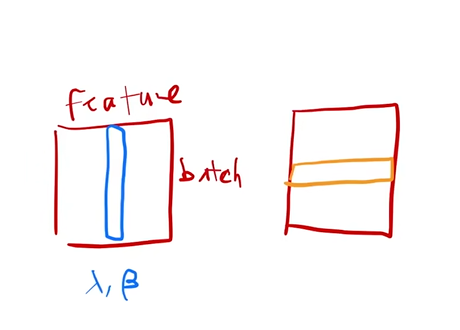 Feature
batch
λ, β